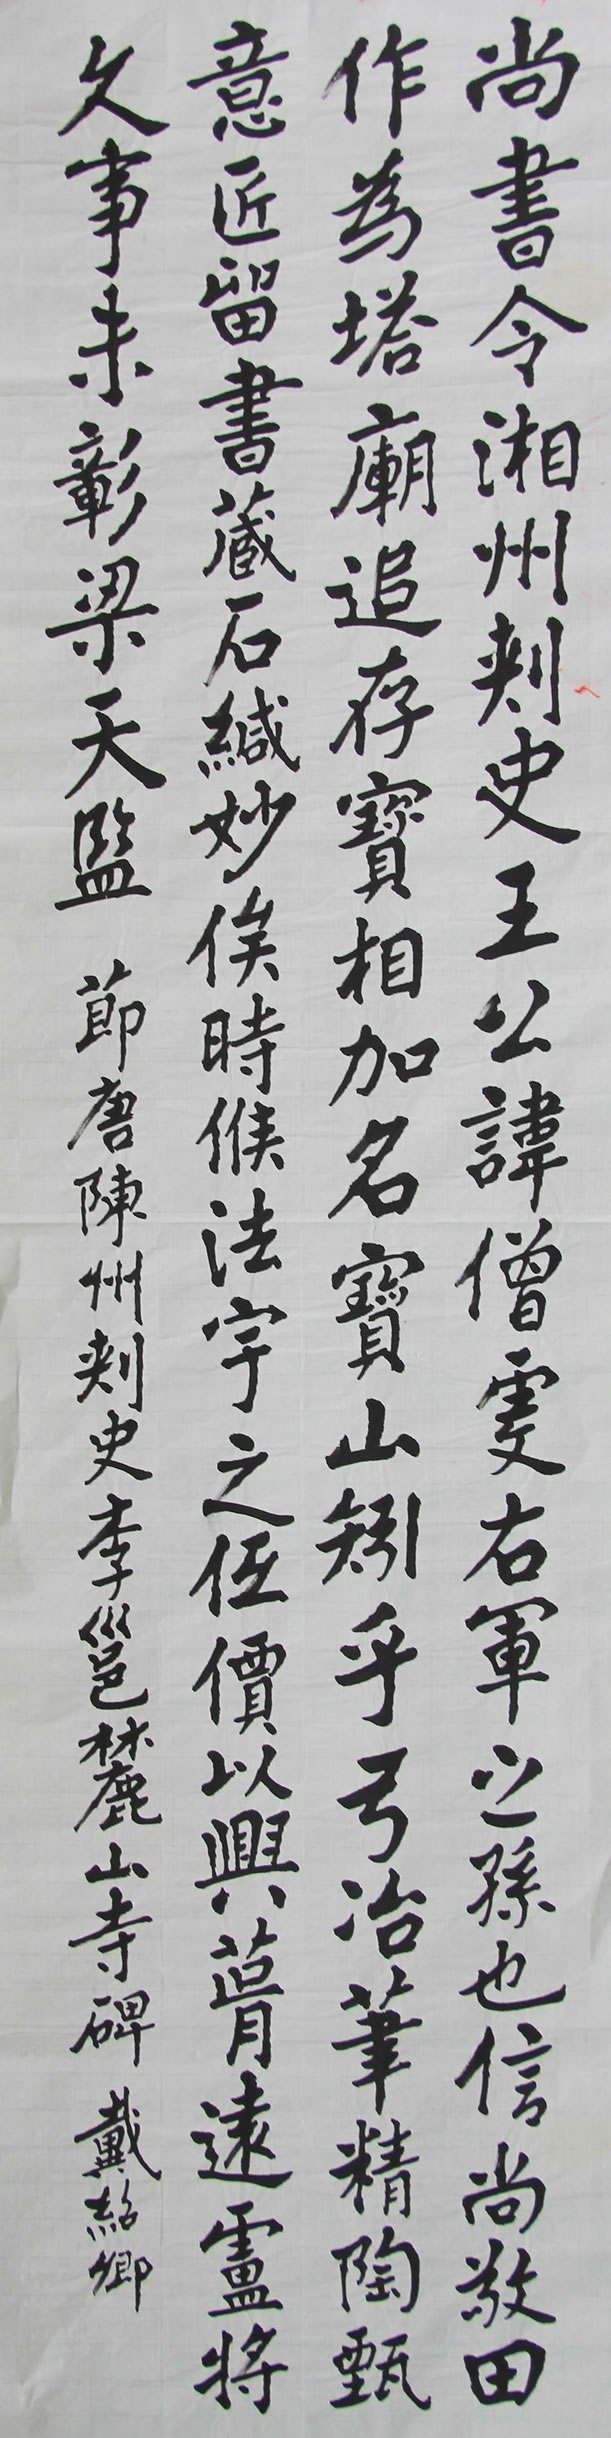 尚書令湘州刺史王公諱僧虔右軍之孫也信尚敬田
作為塔廟追存寶相加名寶山矧乎弓冶筆精陶甄
意匠留書藏石緘妙俟時候法宇之傾價以興葺遠虛將
久事未彰梁天監 節唐陳州刺史李邕麓山寺碑 戴紹卿